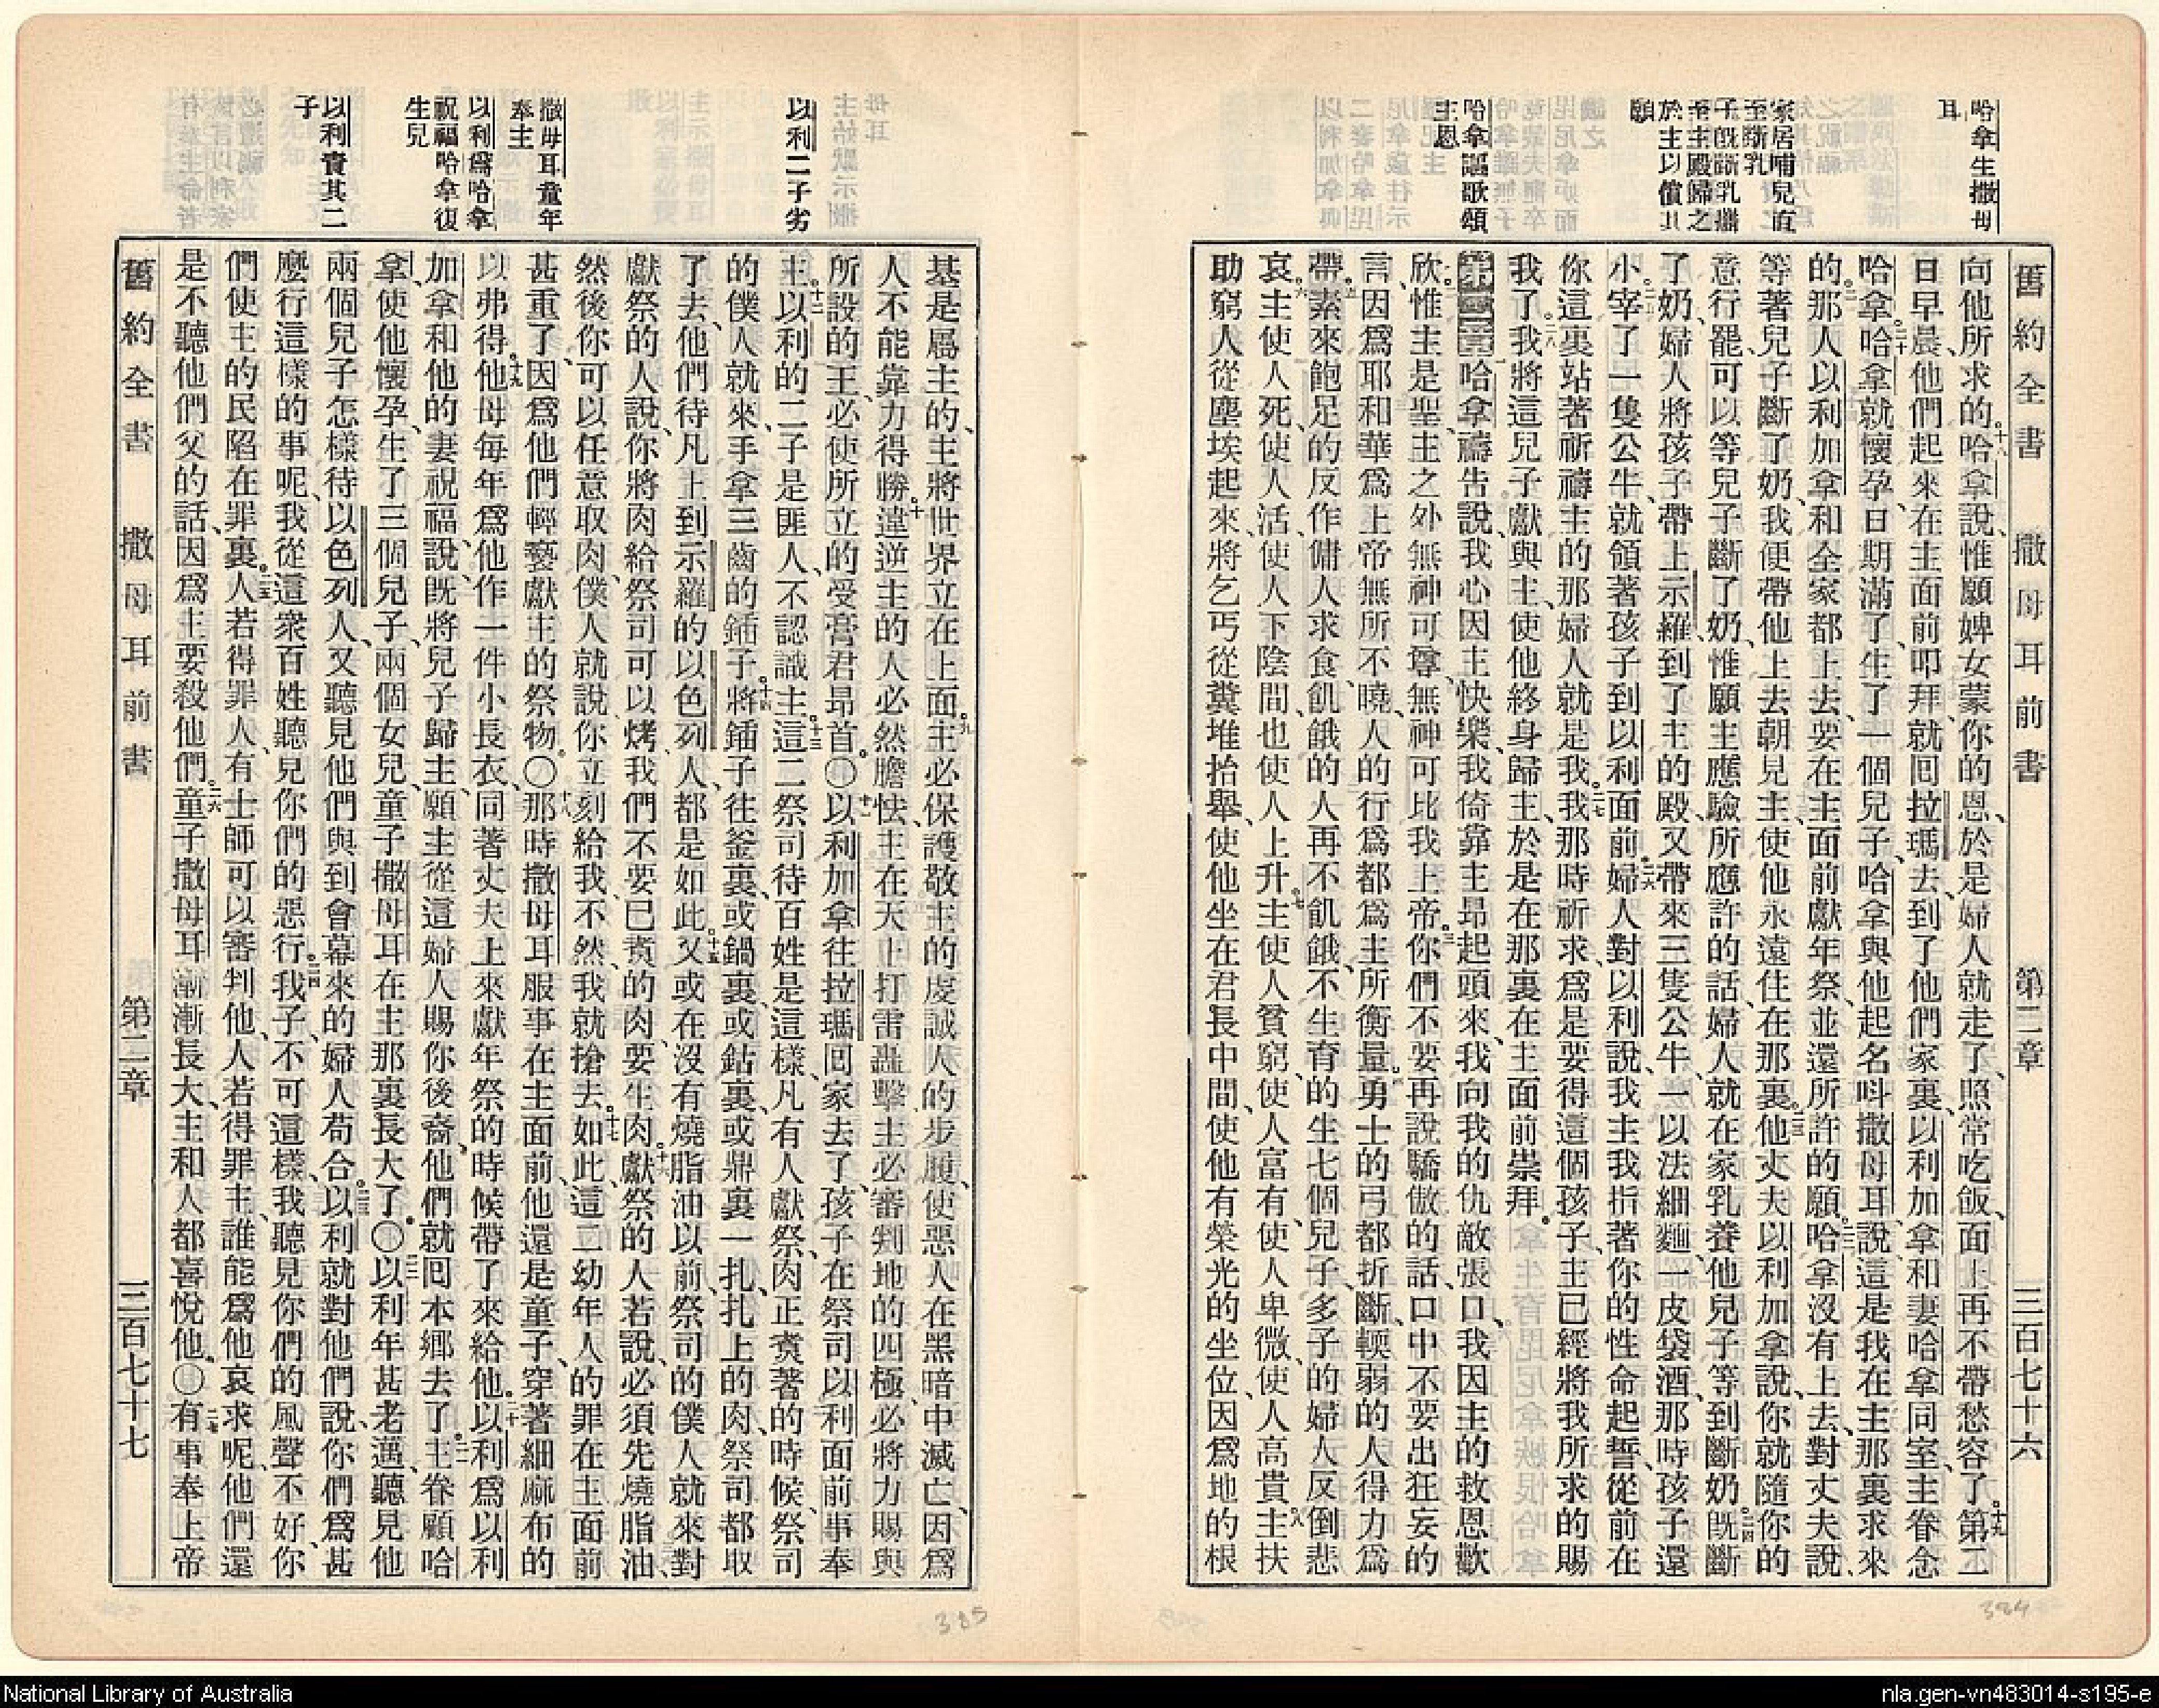 哈拿生撒母
耳
家居哺兒直
至斷乳
子旣斷乳攜
至主殿歸之
於主以償其
願
哈拿謳歌頌
主恩
舊約全書 撒母耳前書 第二章 三百七十六
向他所求的、十八哈拿說、惟願婢女蒙你的恩、於是婦人就走了、照常吃飯、面上再不帶愁容了、十九第二
日早晨他們起來、在主面前叩拜、就囘拉瑪去、到了他們家裏、以利加拿和妻哈拿同室、主眷念
哈拿、二十哈拿就懷孕、日期滿了、生了一個兒子、哈拿與他起名呌撒母耳、說、這是我在主那裏求來
的。二一那人以利加拿和全家都上去、要在主面前獻年祭、並還所許的願、二二哈拿沒有上去、對丈夫說、
等著兒子斷了奶、我便帶他上去朝見主、使他永遠住在那裏。二三他丈夫以利加拿說、你就隨你的
意行罷、可以等兒子斷了奶、惟願主應驗所應許的話、婦人就在家乳養他兒子、等到斷奶。二四旣斷
了奶、婦人將孩子帶上示羅、到了主的殿、又帶來三隻公牛、一以法細麵、一皮袋酒、那時孩子還
小、二五宰了一隻公牛、就領著孩子到以利面前、二六婦人對以利說、我主、我指著你的性命起誓、從前在
你這裏站著祈禱主的那婦人就是我、二七我那時祈求、爲是要得這個孩子、主已經將我所求的賜
我了、二八我將這兒子獻與主、使他終身歸主、於是在那裏在主面前崇拜。
第二章一哈拿禱告說、我心因主快樂、我倚靠主昂起頭來、我向我的仇敵張口、我因主的救恩歡
欣、二惟主是聖、主之外無神可尊、無神可比我上帝、三你們不要再說驕傲的話、口中不要出狂妄的
言、因爲耶和華爲上帝無所不曉、人的行爲都爲主所衡量。四勇士的弓都折斷、輭弱的人得力爲
帶。五素來飽足的反作傭人求食、飢餓的人再不飢餓、不生育的生七個兒子、多子的婦人反倒悲
哀。六主使人死、使人活、使人下陰間、也使人上升。七主使人貧窮、使人富有、使人卑微、使人高貴、八主扶
助窮人從塵埃起來、將乞丐從糞堆抬舉、使他坐在君長中間、使他有榮光的坐位、因爲地的根
384
以利二子劣
撒母耳童年
奉主
以利爲哈拿
祝福哈拿復
生兒
以利責其二
子
基是屬主的、主將世界立在上面。九主必保護敬主的虔誠人的步履、使惡人在黑暗中滅亡、因爲
人不能靠力得勝。十違逆主的人必然膽怯、主在天上打雷轟擊、主必審判地的四極、必將力賜與
所設的王、必使所立的受膏君昂首。〇十一以利加拿往拉瑪囘家去了、孩子在祭司以利面前事奉
主。十二以利的二子是匪人、不認識主。十三這二祭司待百姓是這樣、凡有人獻祭、肉正煑著的時候、祭司
的僕人就來、手拿三齒的鍤子、十四將鍤子往釜裏、或鍋裏、或鈷裏、或鼎裏一扎、扎上的肉、祭司都取
了去、他們待凡上到示羅的以色列人、都是如此。十五又或在沒有燒脂油以前、祭司的僕人就來對
獻祭的人說、你將肉給祭司、可以烤、我們不要已煑的肉、要生肉、十六獻祭的人若說、必須先燒脂油、
然後你可以任意取肉、僕人就說、你立刻給我、不然我就搶去。十七如此、這二幼年人的罪在主面前
甚重了、因爲他們輕褻獻主的祭物。〇十八那時撒母耳服事在主面前、他還是童子、穿著細麻布的
以弗得。十九他母每年爲他作一件小長衣、同著丈夫上來獻年祭的時候、帶了來給他。二十以利爲以利
加拿和他的妻祝福、說、旣將兒子歸主、願主從這婦人賜你後裔、他們就囘本鄉去了、二一主眷顧哈
拿、使他懷孕、生了三個兒子、兩個女兒、童子撒母耳在主那裏長大了。〇二二以利年甚老邁、聽見他
兩個兒子怎樣待以色列人、又聽見他們與到會幕來的婦人苟合。二三以利就對他們說、你們爲甚
麼行這樣的事呢、我從這衆百姓聽見你們的惡行。二四我子、不可這樣、我聽見你們的風聲不好、你
們使主的民陷在罪裏、二五人若得罪人、有士師可以審判他、人若得罪主、誰能爲他哀求呢、他們還
是不聽他們父的話、因爲主要殺他們。二六童子撒母耳漸漸長大、主和人都喜悅他。〇二七有事奉上帝
舊約全書 撒母耳前書 第二章 三百七十七
385
National Library of Australia
nla.gen-vn483014-s195-e